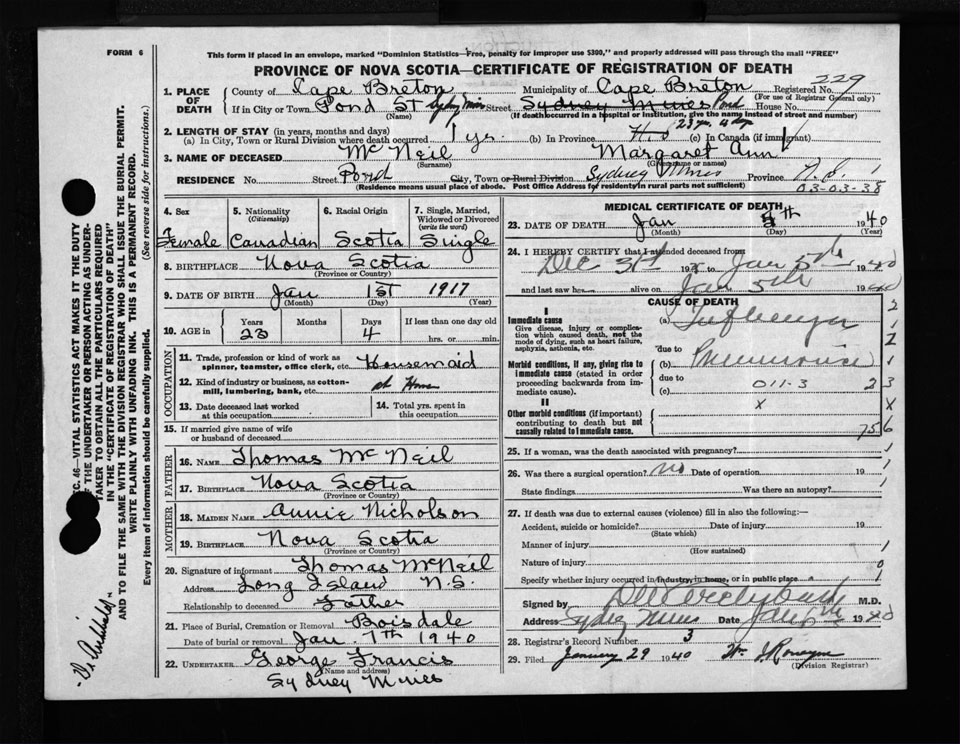 FORM 6
This form if placed in an envelope, marked "Dominion Statistics—Free, penalty for improper use $300," and properly addressed will pass through the mail "FREE"
PROVINCE OF NOVA SCOTIA—CERTIFICATE OF REGISTRATION OF DEATH
229
1. PLACE OF DEATH County of Cape Breton Municipality of Cape Breton Registered No.
(For use of Registrar General only)
If in City or Town Pond St Sydney Mines Street Sydney Mines Pond House No.
(Name) (If death occurred in a hospital or institution, give the name instead of street and number)
2. LENGTH OF STAY (in years, months and days)
(a) In City, Town or Rural Division where death occurred 1 yr. (b) In Province 23 yr. 4 dy (c) In Canada (if immigrant)
3. NAME OF DECEASED McNeil Margaret Ann
(Surname) (Given name or names)
RESIDENCE No. Street Pond City, Town or Rural Division Sydney Mines Province N.S. 1
(Residence means usual place of abode. Post Office Address for residents in rural parts not sufficient) 03-03-38
4. Sex 5. Nationality (Citizenship) 6. Racial Origin 7. Single, Married, Widowed or Divorced (write the word)
Female Canadian Scotia Single
8. BIRTHPLACE Nova Scotia
(Province or Country)
9. DATE OF BIRTH Jan 1st 1917
(Month) (Day) (Year)
10. AGE in Years Months Days If less than one day old
23 4 hrs. or min.
OCCUPATION
11. Trade, profession or kind of work as spinner, teamster, office clerk, etc. Housemaid
12. Kind of industry or business, as cotton-mill, lumbering, bank, etc. at Home
13. Date deceased last worked at this occupation
14. Total yrs. spent in this occupation
15. If married give name of wife or husband of deceased
FATHER
16. NAME Thomas McNeil
17. BIRTHPLACE Nova Scotia
(Province or Country)
MOTHER
18. MAIDEN NAME Annie Nicholson
19. BIRTHPLACE Nova Scotia
(Province or Country)
20. Signature of informant Thomas McNeil
Address Long Island N.S.
Relationship to deceased Father
21. Place of Burial, Cremation or Removal Boisdale
Date of burial or removal Jan. 7th 1940
22. UNDERTAKER George Francis
(Name and address)
Sydney Mines
MEDICAL CERTIFICATE OF DEATH
23. DATE OF DEATH Jan 5th 1940
(Month) (Day) (Year)
24. I HEREBY CERTIFY that I attended deceased from
Dec 31st 19 to Jan 5th 1940
and last saw h alive on Jan 5th 1940
CAUSE OF DEATH
I
Immediate cause (a) Influenza
Give disease, injury or complication which caused death, not the mode of dying, such as heart failure, asphyxia, asthenia, etc.
due to
Morbid conditions, if any, giving rise to immediate cause (stated in order proceeding backwards from immediate cause). (b) Pneumonia
due to 011-3 23
(c)
II
Other morbid conditions (if important) contributing to death but not causally related to immediate cause.
x x
756
25. If a woman, was the death associated with pregnancy? 1
26. Was there a surgical operation? no Date of operation 19 1
State findings Was there an autopsy? 1
27. If death was due to external causes (violence) fill in also the following:—
Accident, suicide or homicide? Date of injury 19
(State which)
Manner of injury 1
(How sustained)
Nature of injury 0
Specify whether injury occurred in industry, in home, or in public place 1
Signed by M.D.
Address Sydney Mines Date 1940
28. Registrar's Record Number 3
29. Filed January 29 1940 Wm
(Division Registrar)
SEC. 46—VITAL STATISTICS ACT MAKES IT THE DUTY
OF THE UNDERTAKER OR PERSON ACTING AS UNDER-
TAKER TO OBTAIN ALL THE PARTICULARS REQUIRED
IN THE "CERTIFICATE OF REGISTRATION OF DEATH"
AND TO FILE THE SAME WITH THE DIVISION REGISTRAR WHO SHALL ISSUE THE BURIAL PERMIT.
WRITE PLAINLY WITH UNFADING INK. THIS IS A PERMANENT RECORD.
Every item of information should be carefully supplied. (See reverse side for instructions.)